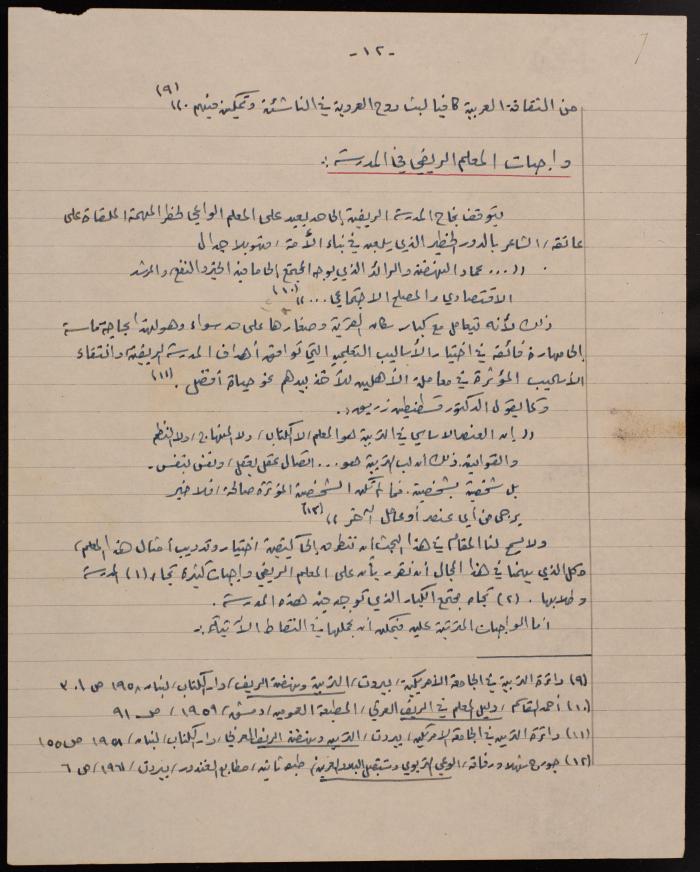 -١٢-
من الثقافة العربية كافيا لبث روح العروبة في الناشئة وتمكين فيهم .)) (٩)
واجبات المعلم الريفي في المدرسة :
يتوقف نجاح المدرسة الريفية إلى حد بعيد على المعلم الواعي لخطر المهمة الملقاة على
عاتقه، الشاعر بالدور الخطير الذي يلعبه في بناء الأمة، فهو بلا جدال
((... عماد النهضة والرائد الذي يوجه المجتمع إلى ما فيه الخير والنفع، والمرشد
الاقتصادي والمصلح الاجتماعي ...)) (١٠)
ذلك لأنه يتعامل مع كبار سكان القرية وصغارها على حد سواء وهو لهذا بحاجة ماسة
إلى مهارة فائقة في اختيار الأساليب التعليمي التي توافق أهداف المدرسة الريفية، وانتقاء
الأساليب المؤثرة في معاملة الأهلين للأخذ بيدهم نحو حياة أفضل . (١١)
وكما يقول الدكتور قسطنطين زريق :
((إن العنصر الأساسي في التربية هو المعلم، لا الكتاب، ولا المنهاج، ولا النظم
والقوانين. ذلك أن لب التربية هو ... اتصال عقل بعقل، ونفس بنفس.
بل شخصية بشخصية. فما لم تكن الشخصية المؤثرة صالحة، فلا خير
يرجى من أي عنصر أو عامل آخر)) (١٢)
ولا يسمح لنا المقام في هذا البحث أن نتطرق إلى كيفية اختيار وتدريب أمثال هذا المعلم،
وكل الذي يهمنا في هذا المجال أن نقرر بأن على المعلم الريفي واجبات كثيرة تجاه (١) المدرسة
وطلابها . (٢) تجاه مجتمع الكبار الذي توجد فيه هذه المدرسة .
أما الواجبات المترتبة عليه فيمكن أن نجملها في النقاط الآتية :
(٩) دائرة التربية في الجامعة الأمريكية، بيروت، التربية ونهضة الريف، دار الكتاب، لبنان ١٩٥٨ ص ٣٠١
(١٠) أحمد القاسم، دليل المعلم في الريف العربي، المطبعة العمومية، دمشق، ١٩٥٩، ص ٩١
(١١) دائرة التربية في الجامعة الأمريكية، بيروت، التربية ونهضة الريف العربي، دار الكتاب، لبنان، ١٩٥٨ ص ١٥٥
(١٢) جورج شهلا ورفاقه، الوعي التربوي ومستقبل البلاد العربية، طبعة ثانية، مطابع الغندور، بيروت، ١٩٦١، ص ٦